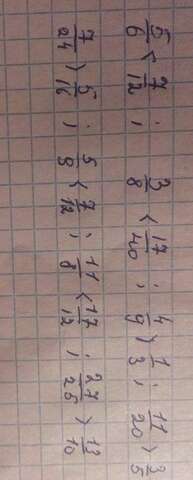 5/6 < 7/12 ; 3/8 < 17/40 ; 4/9 > 1/3 ; 11/20 > 3/5
7/24 > 5/16 ; 5/9 < 7/12 ; 11/8 < 17/12 ; 27/25 > 13/10